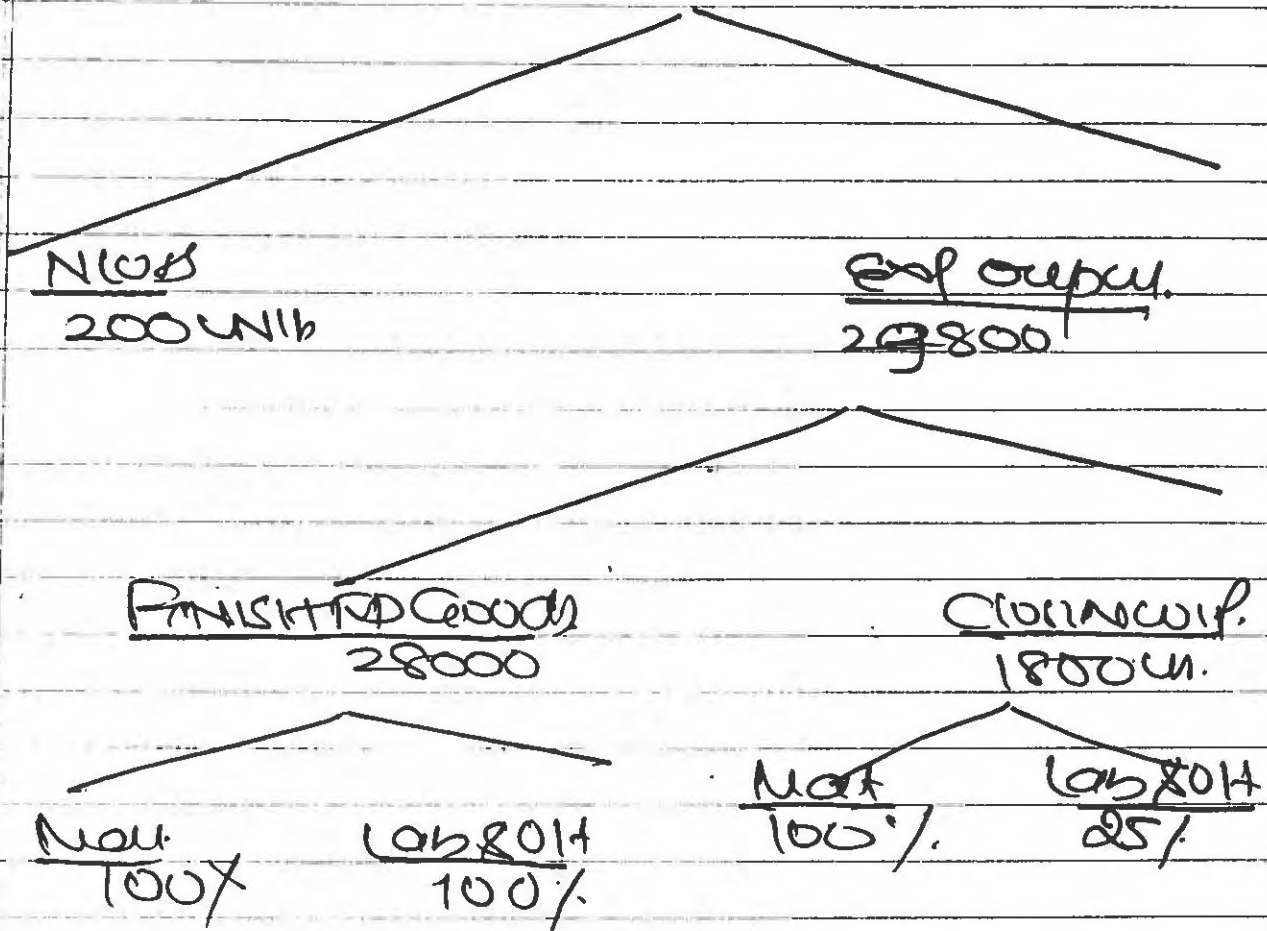 NLOSS
200 UNITS
Exp output.
29800
FINISHED GOODS
28000
Closing WIP.
1800 un.
Mat.
100%
Lab & OH
100%
Mat
100%
Lab & OH
25%